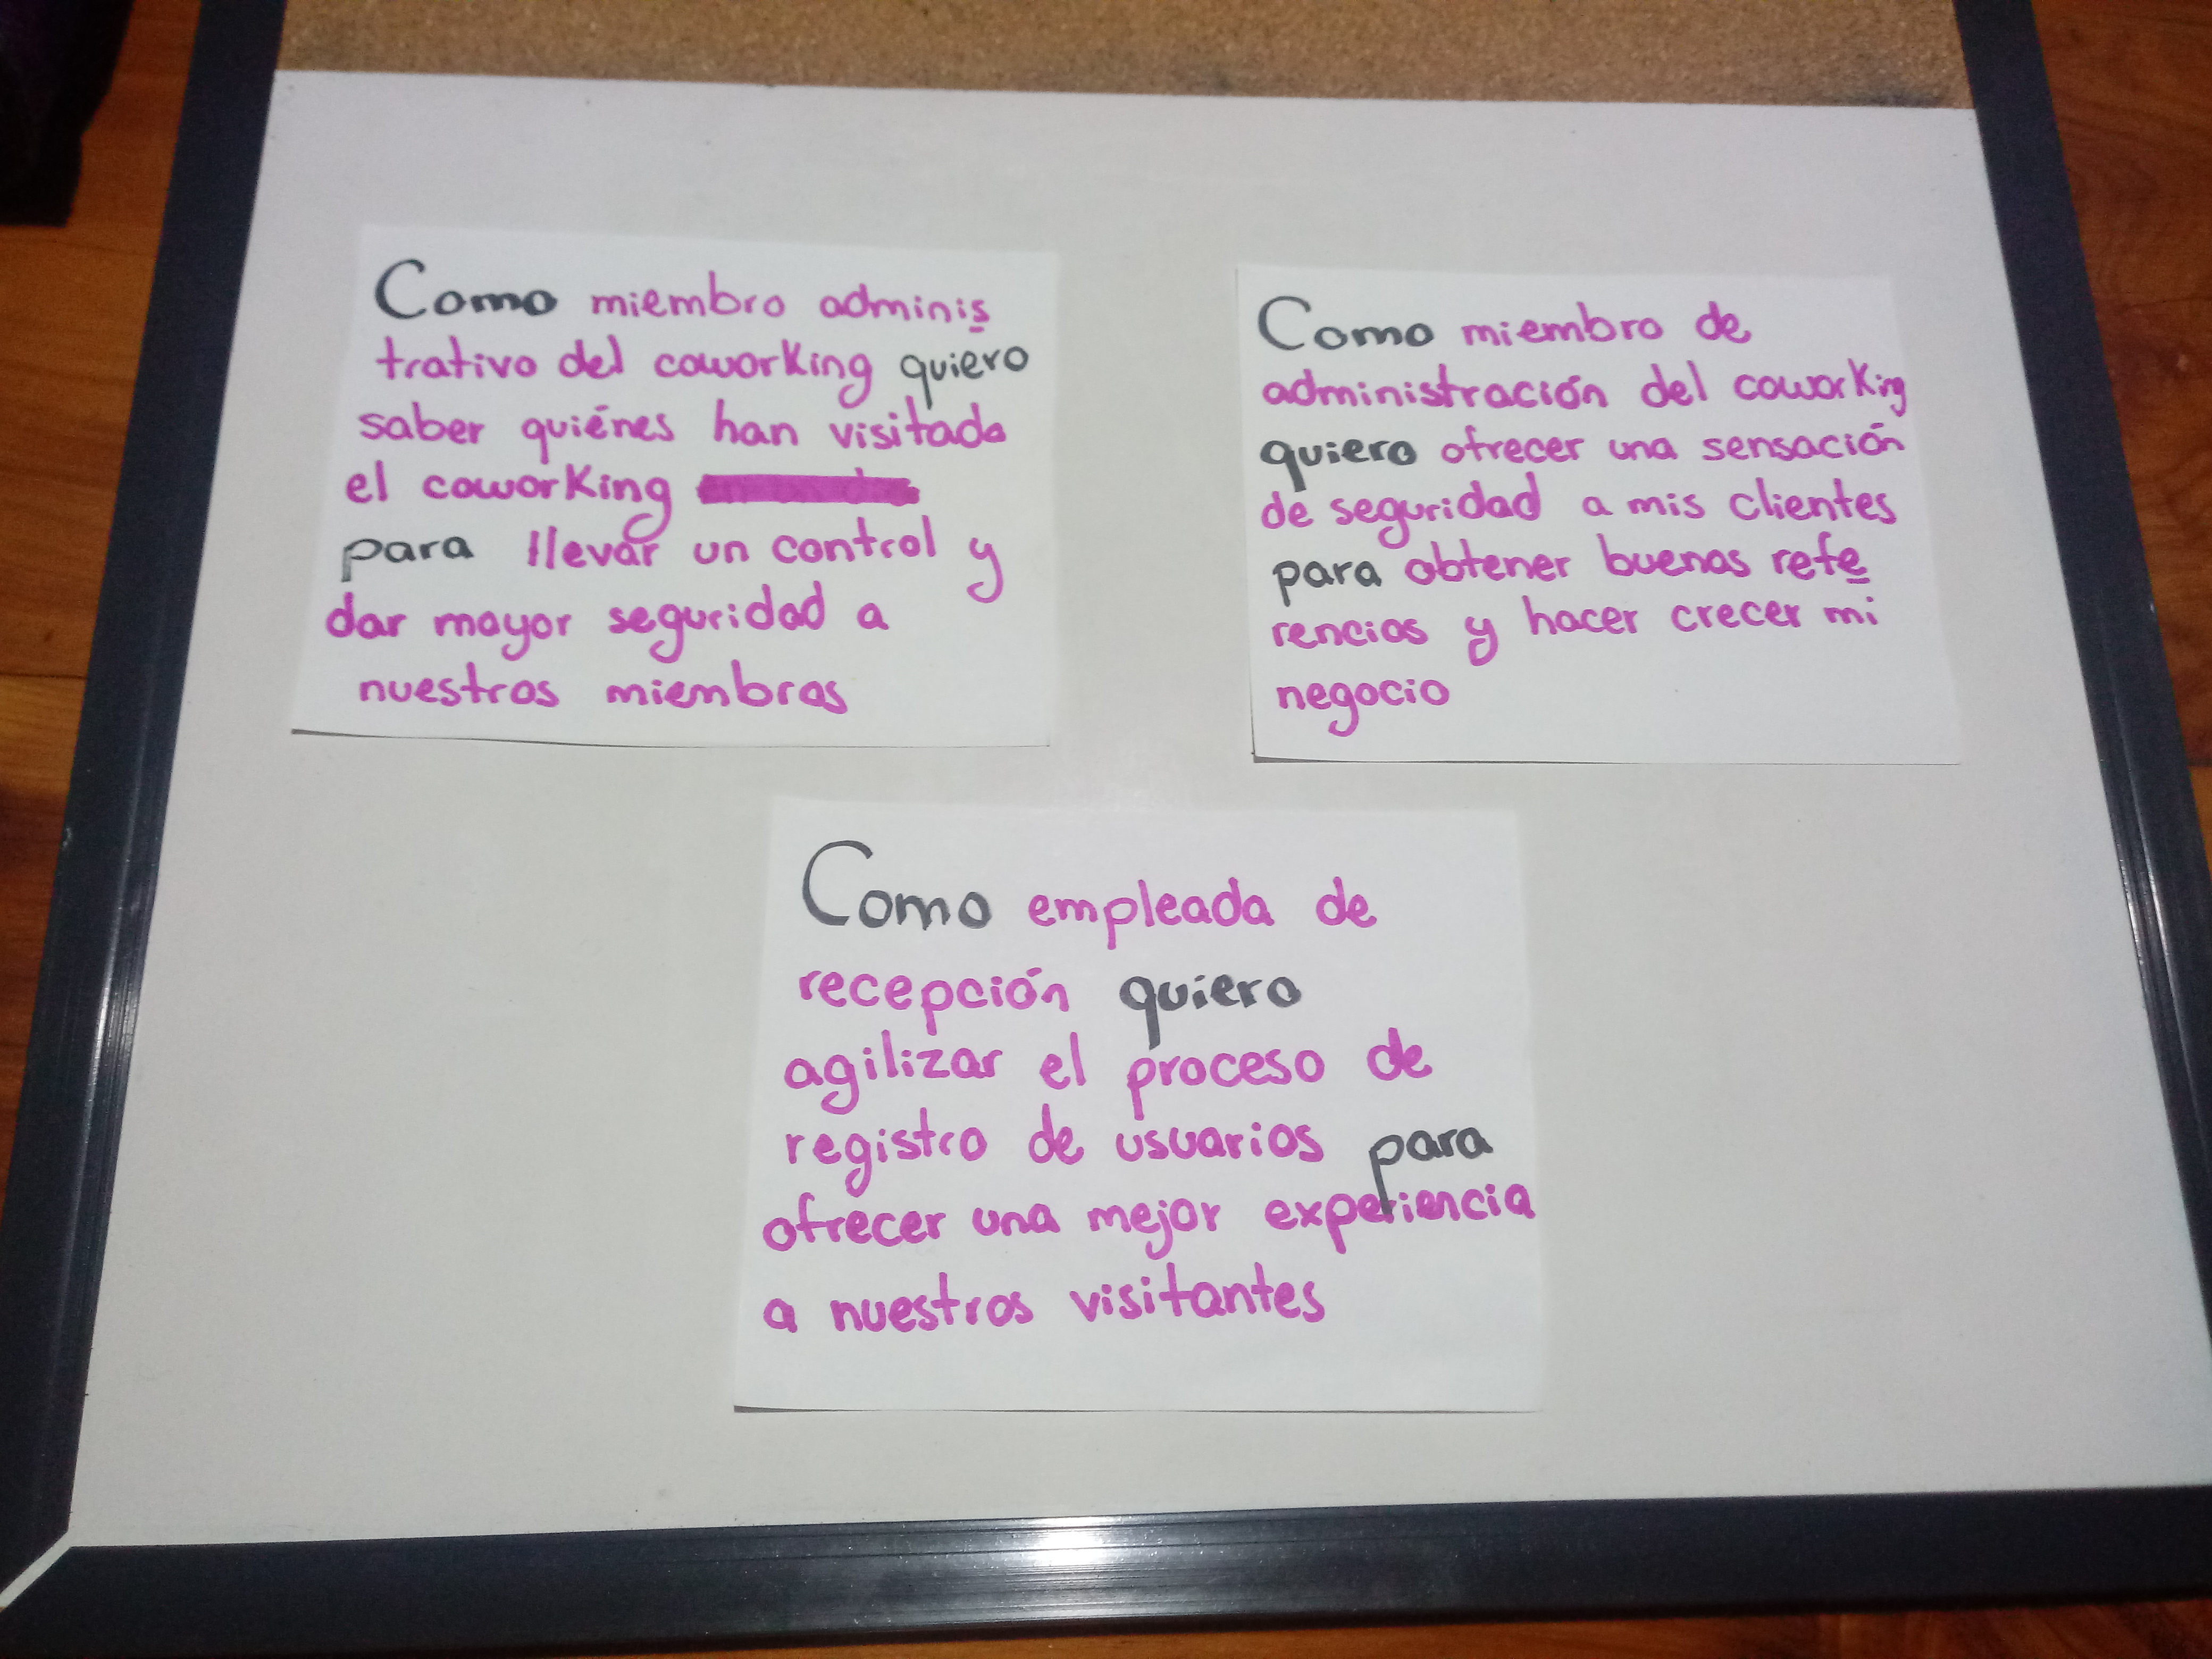 Como miembro adminis
trativo del coworking quiero
saber quiénes han visitado
el coworking
para llevar un control y
dar mayor seguridad a
nuestros miembros
Como miembro de
administración del coworking
quiero ofrecer una sensación
de seguridad a mis clientes
para obtener buenas refe
rencias y hacer crecer mi
negocio
Como empleada de
recepción quiero
agilizar el proceso de
registro de usuarios para
ofrecer una mejor experiencia
a nuestros visitantes